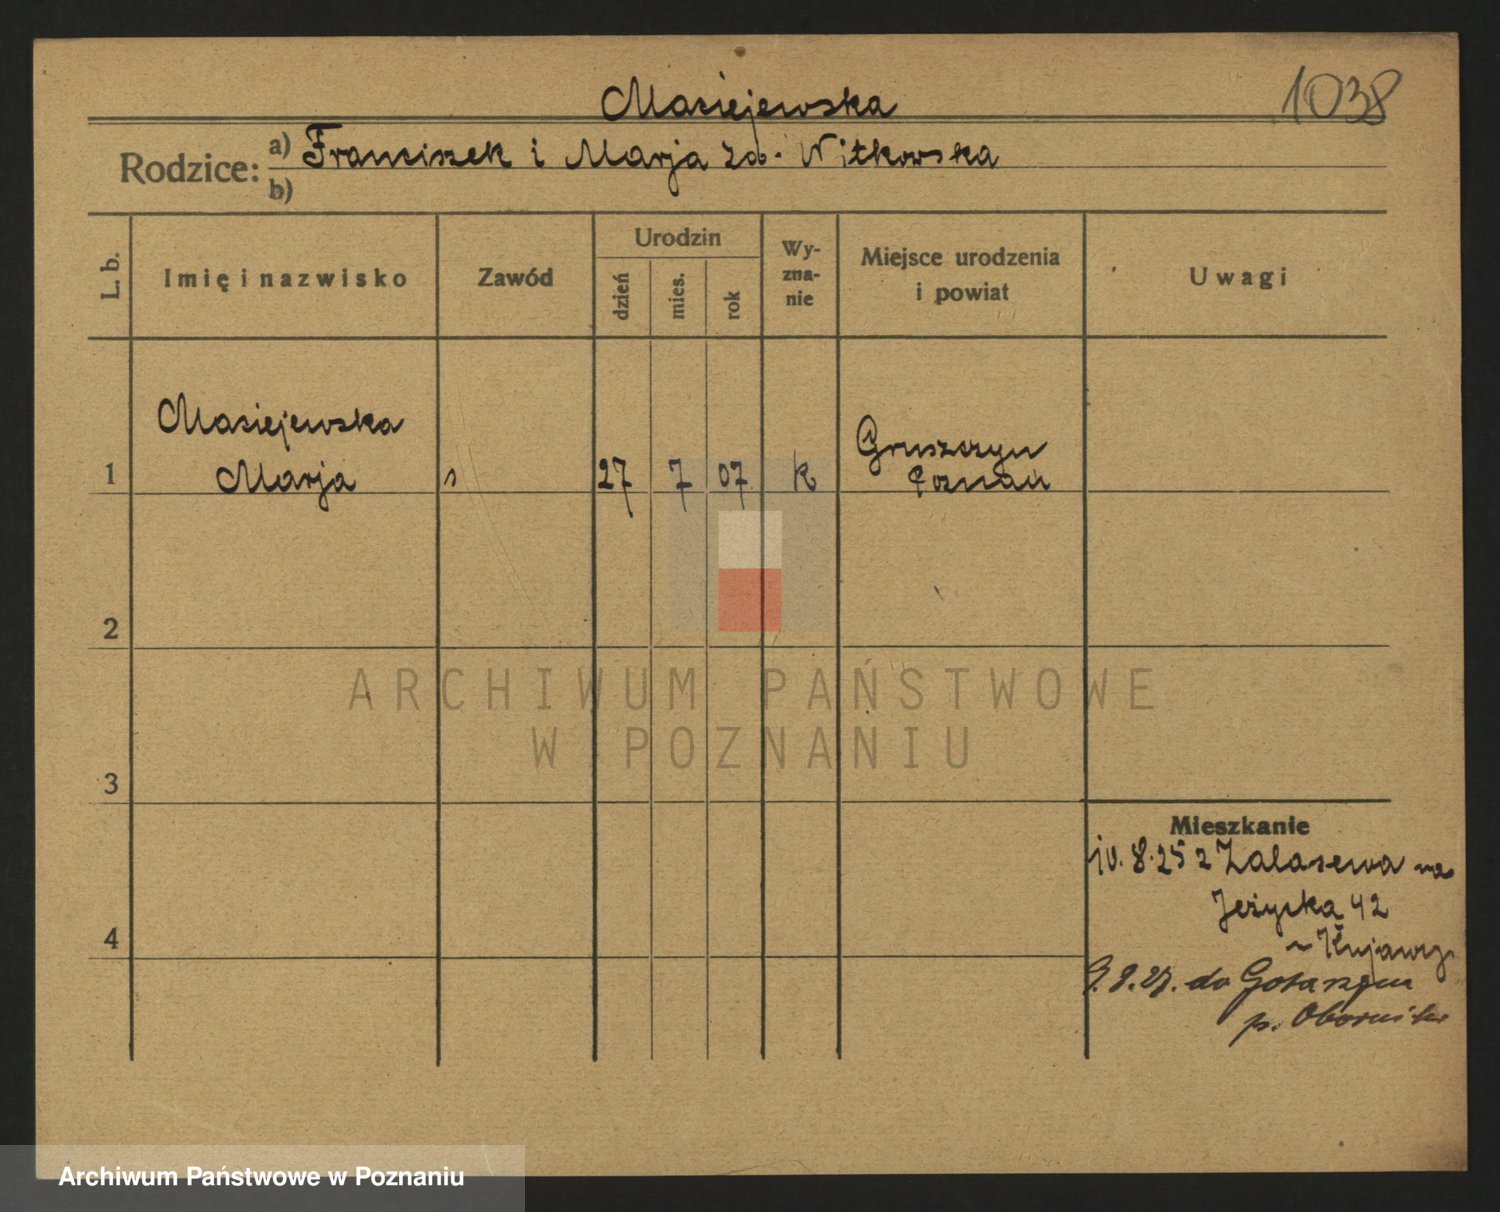 Maciejewska
1038
Rodzice: a) Franciszek i Marja zd. Witkowska
b)
L. b.
Imię i nazwisko
Zawód
Urodzin
dzień
mies.
rok
Wy-
zna-
nie
Miejsce urodzenia
i powiat
Uwagi
Maciejewska
Marja
1
s
27
7
07
k
Gruszczyn
Poznań
2
3
4
Mieszkanie
10. 8. 25 z Zalasewa na
Jeżycka 42
Kujawy
9. 9. 27. do
p. Oborniki
ARCHIWUM PAŃSTWOWE
W POZNANIU
Archiwum Państwowe w Poznaniu